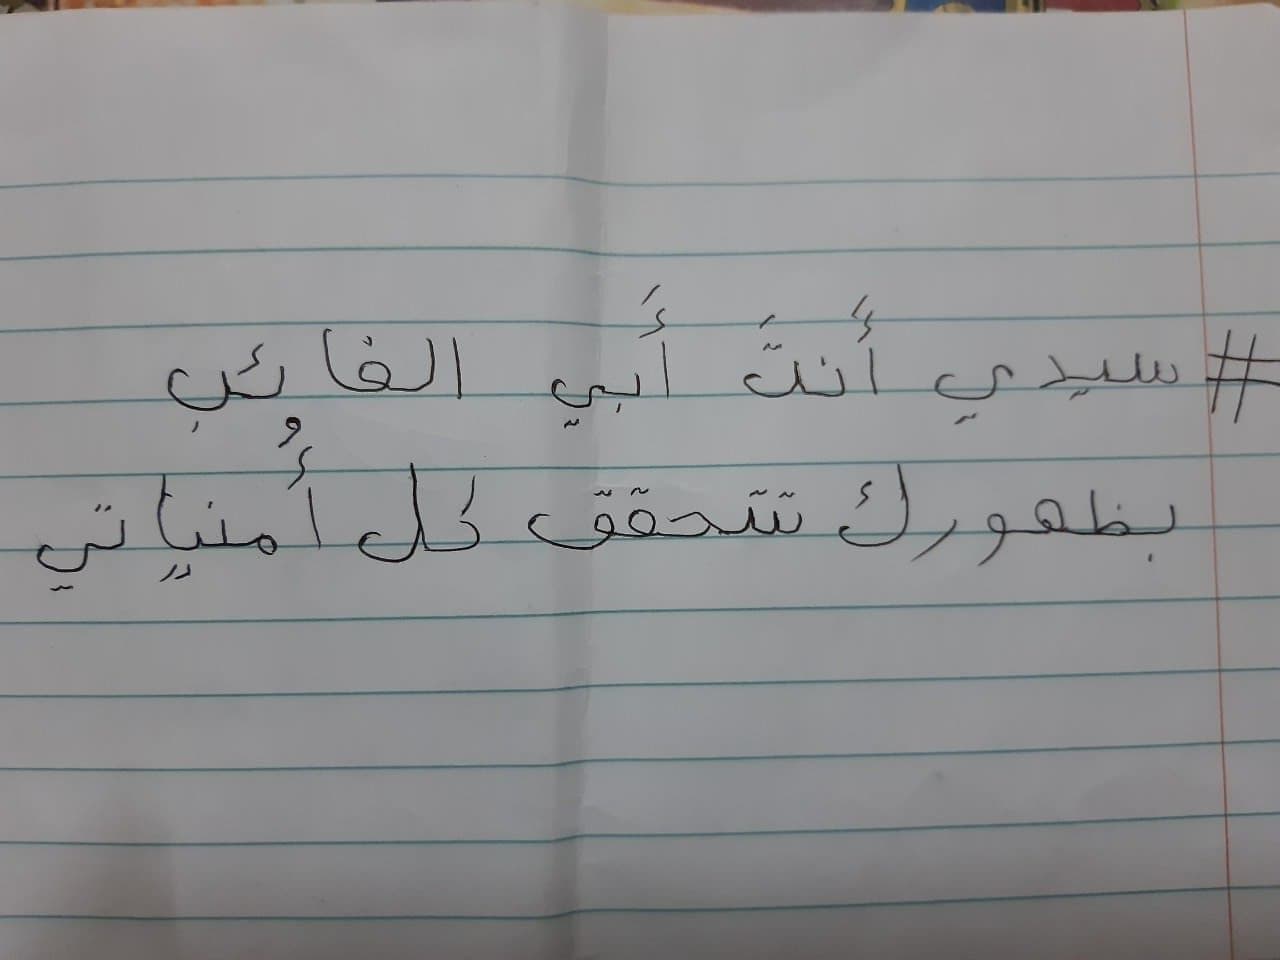 # سيدي أَنتَ أَبي الغائب
بظهورك تتحقق كل أُمنياتي